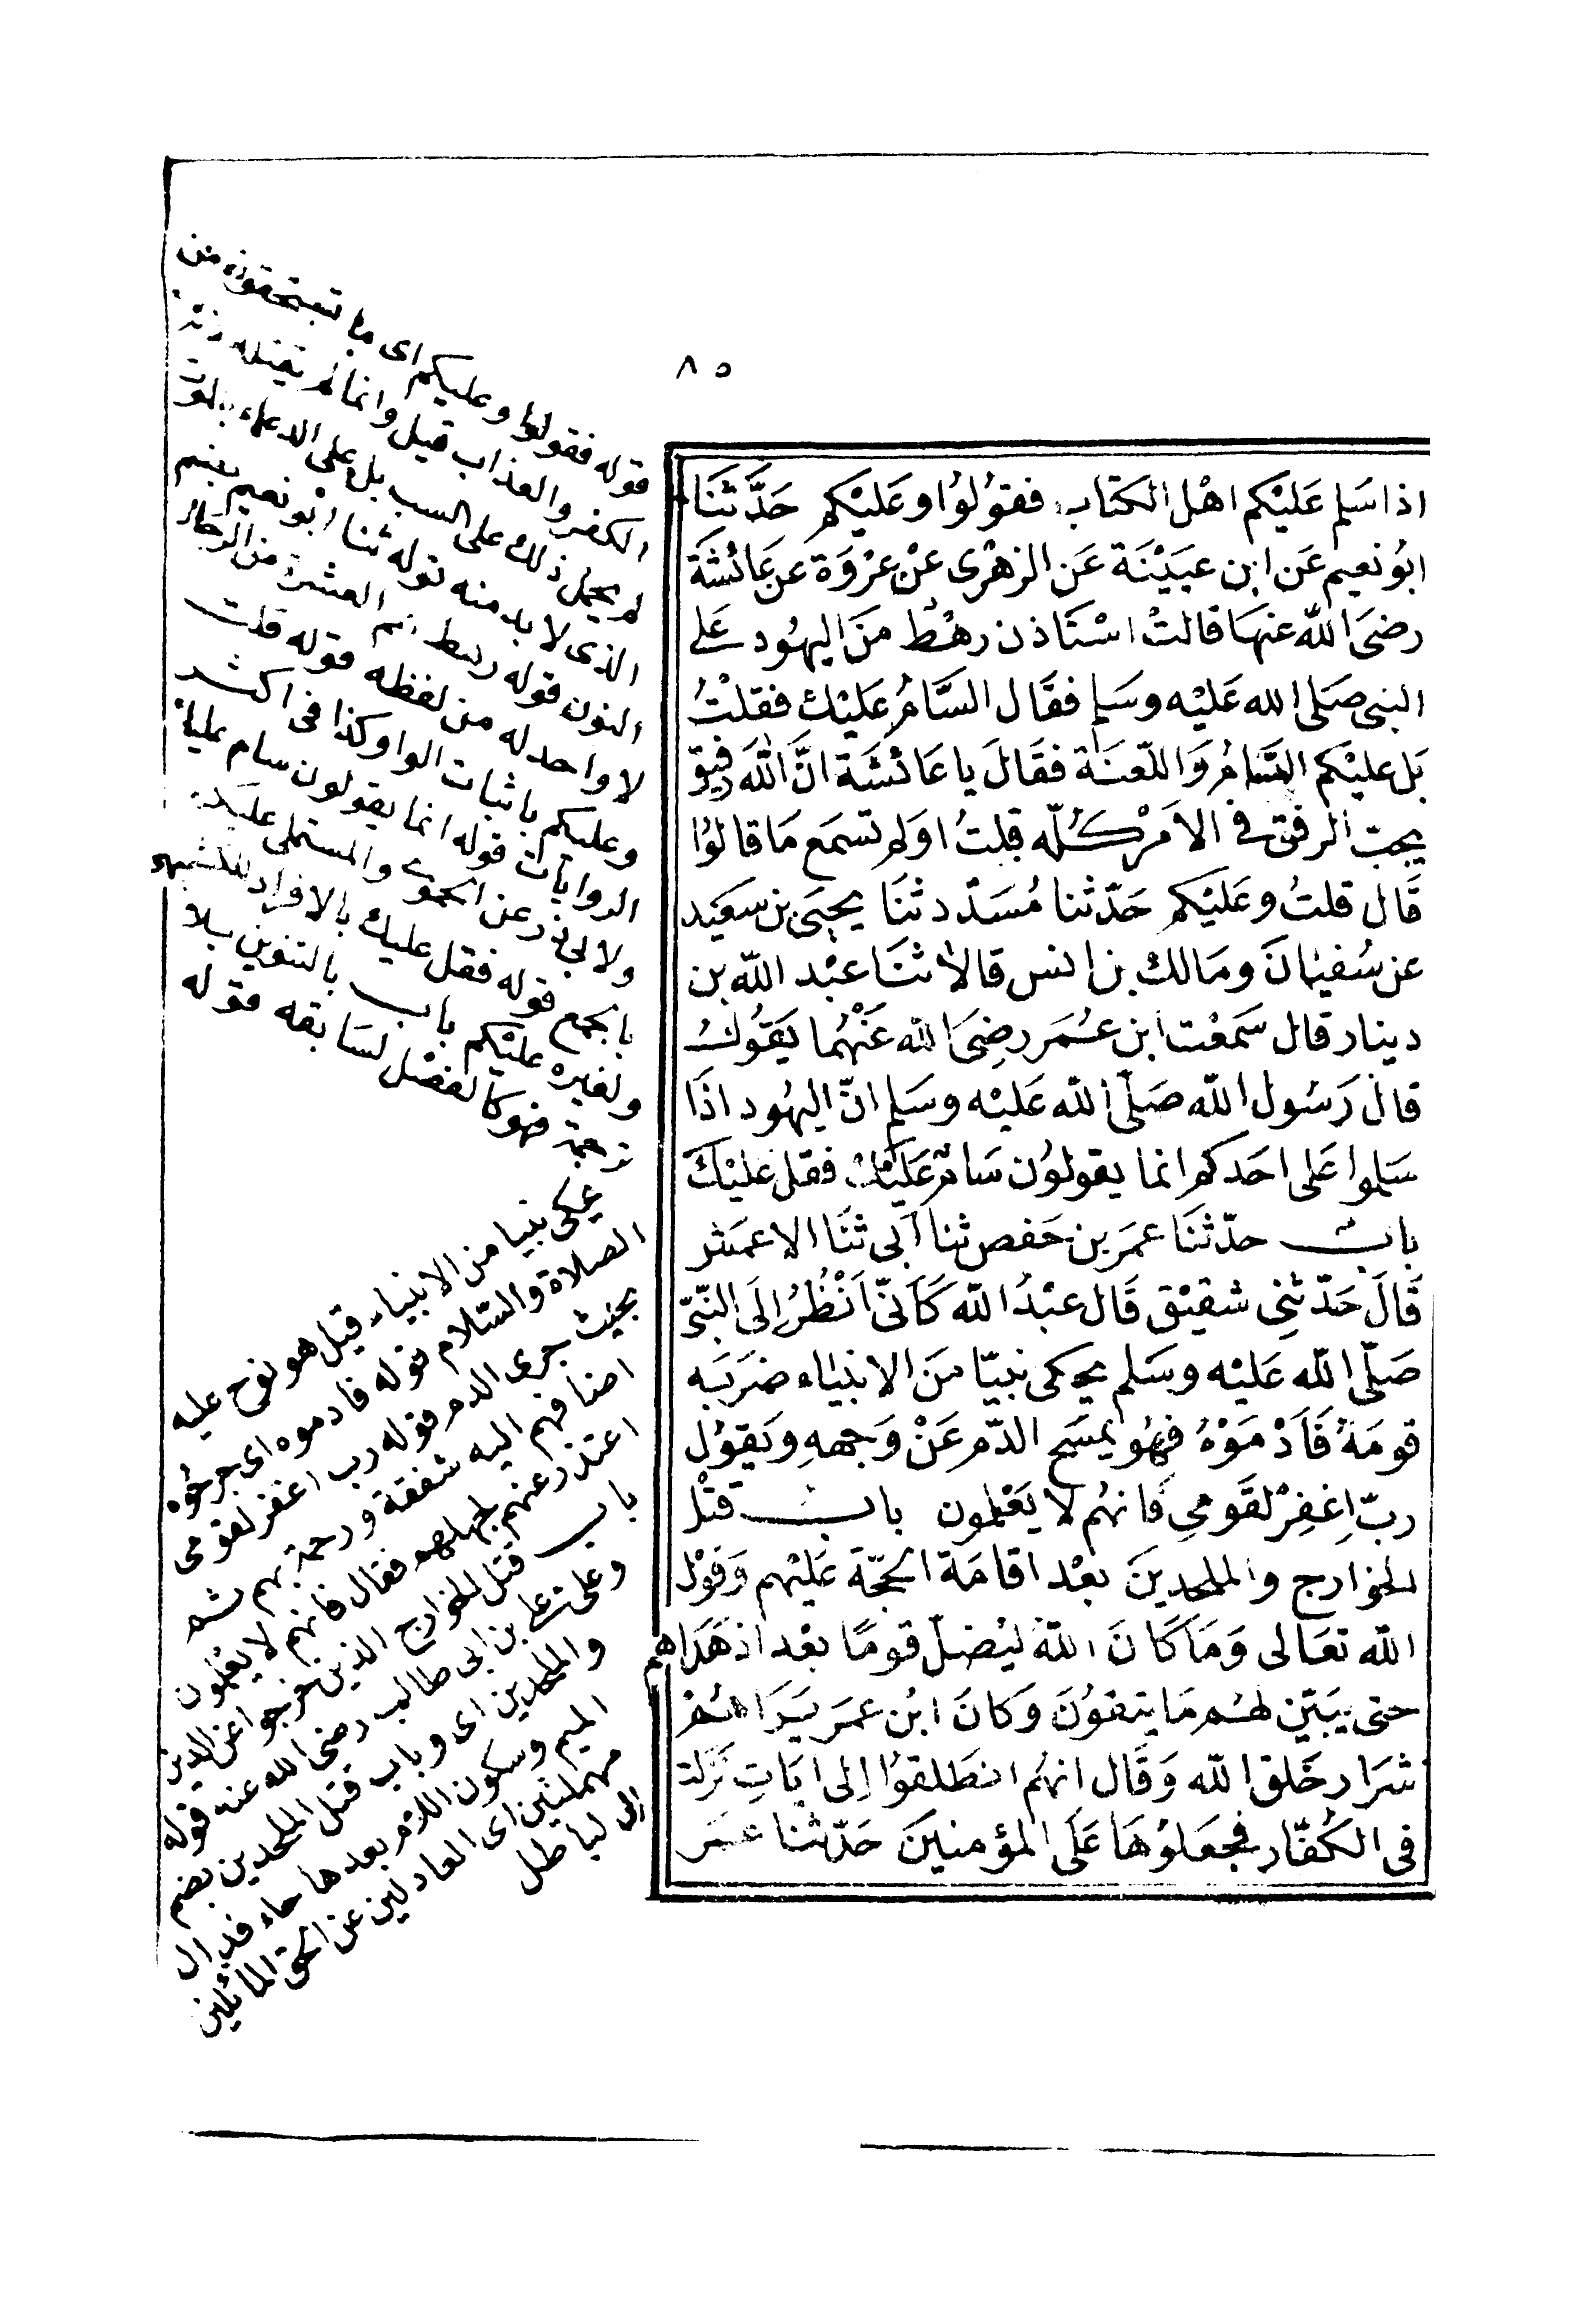 ٨٥
اذا سَلم عَليْكم اهْل الكتاب فقوُلوُا وعَليْكم حَدَّثنَا
ابوُ نعيم عَن ابن عيَيْنَة عَن الزهْرى عَنْ عرْوَة عن عَائشَة
رضىَ الله عنهَا قالتْ اسْتَاذن رهْط منَ اليهوُد عَلى
النبى صَلى الله عَليْه وسَلم فقَال السَّامُ عَليْك فقلْتُ
بَل عليْكم السَّامُ وَاللّعنَة فقَالَ يا عَائشَة انَّ اللهَ رفيْق
يحبّ الرفق فى الاَمرْ كُلّه قلتُ اوَلم تسمَع مَا قالوُا
قَال قلتُ وعَليْكم حَدّثنا مُسَدّد ثنَا يحيىَ بن سَعيْد
عن سُفيَانَ ومَالك بن انس قالاَ ثنَا عبْد الله بن
دينار قال سَمعْت ابن عُمَر رضِىَ الله عَنْهُما يَقوُل
قالَ رَسُول الله صَلّى الله عَليْه وسَلم انّ اليهوُد اذَا
سَلموا عَلى احَدكم انما يقولوُن سَامٌ عَليْك فقل عَليْكَ
باب حدّثنَا عمَر بن حَفص ثنا ابى ثنَا الاعمَش
قَالَ حَدّثنِى شقيْق قَال عبْدُ الله كَاَنّى اَنْظُرُ اِلَى النّبىّ
صَلّى الله عَليْه وسَلم يحكى نبيّا منَ الانبيَاء ضرَبَه
قومَهُ فَاَدْمَوْهُ فهُو يمسَح الدّم عَنْ وَجههِ وَيَقوُل
ربّ اِغفِرْ لقَومِى فَانهُم لا يَعْلمون باب قتْل
الخوارج والملحدينَ بعْد اقامَة الحجّة عَليْهم وَقوْل
الله تعَالى وَمَا كَانَ اللهُ ليُضلّ قومًا بعْد اذ هَدَاهم
حتى يبَيّن لهُم مَا يتقوُنَ وَكانَ ابْن عمَر يَرَاهُمْ
شرَار خَلق الله وَقَال انهُم انطَلقوُا اِلى ايَاتٍ نزَلت
فى الكُفّار فجَعَلوُهَا عَلَى المؤمنينَ حَدّثنا عمَر
قوله فقولوا وعليكم اى ما تستحقونه من
الكفر والعذاب قيل وانما لم يقتله لانه
لم يحمل ذلك على السب بل على الدعاء بالموت
الذى لا بد منه قوله ثنا ابو نعيم بضم
النون قوله رهط هم العشرة من الرجال
لا واحد له من لفظه قوله قلت
وعليكم باثبات الواو وكذا فى اكثر
الروايات قوله انما يقولون سام عليك
ولابى ذر عن الحموى والمستملى عليكم
بالجمع قوله فقل عليك بالافراد للكشميهنى
ولغيره عليكم باب بالتنوين بلا
ترجمة فهو كالفصل لسابقه قوله
يحكى نبيا من الانبياء قيل هو نوح عليه
الصلاة والسّلام قوله فادموه اى جرحُوه
بحيث جرى الدم قوله رب اغفر لقومى
اضافهم اليه شفقة ورحمة بهم ثم
اعتذر عنهم لجهلهم فقال فانهم لا يعْلمون
باب قتل الخوارج الذين خرجوا عن الدين
وعلى على بن ابى طالب رضى الله عنه قوله
والملحدين اى وباب قتل الملحدين بضم
الميم وسكون اللام بعدها حاء فدال
مهملتين اى العادلين عن الحق المائلين
الى لباطل